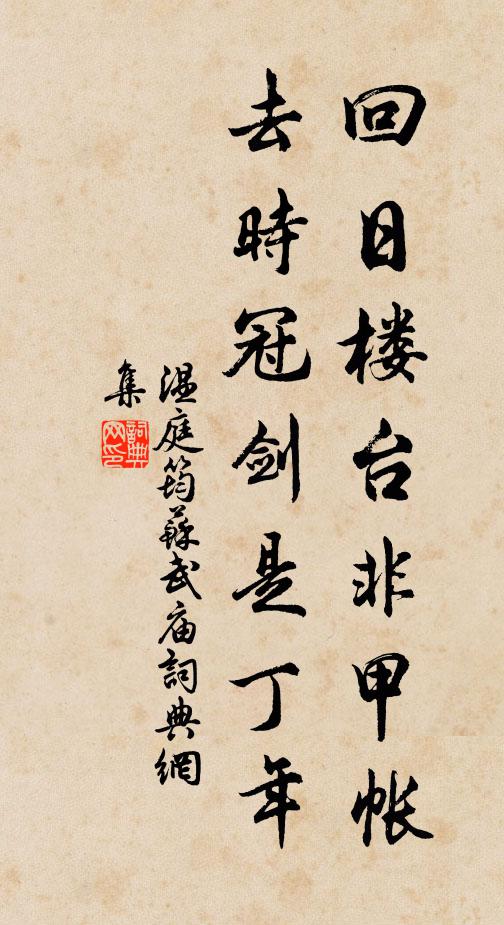 回日楼台非甲帐
去時冠剑是丁年
温庭筠蘇武庙詞典網
集
詞典
网印